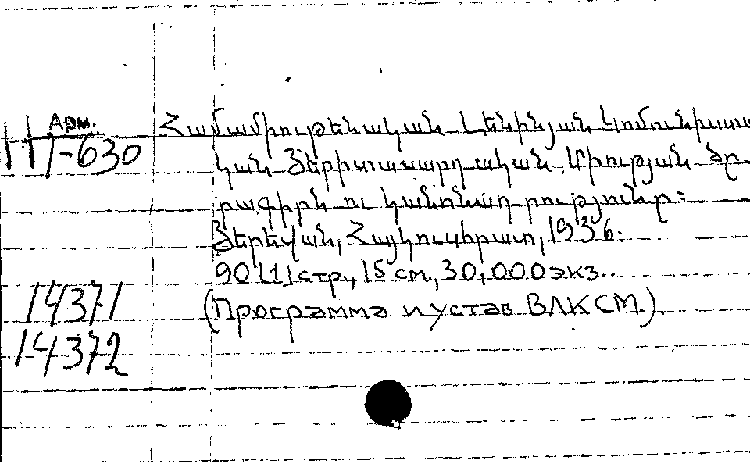 Арм.
III-630
Համամիութենական Լենինյան Կոմունիստա
կան Յերիտասարդական Միության Ծը
րագիրն ու կանոնադրությունը:
Յերեվան, Հայկուսհրատ, 1936.
90[1] стр., 15 см, 30,000 экз..
(Программа и устав ВЛКСМ.)
14371
14372